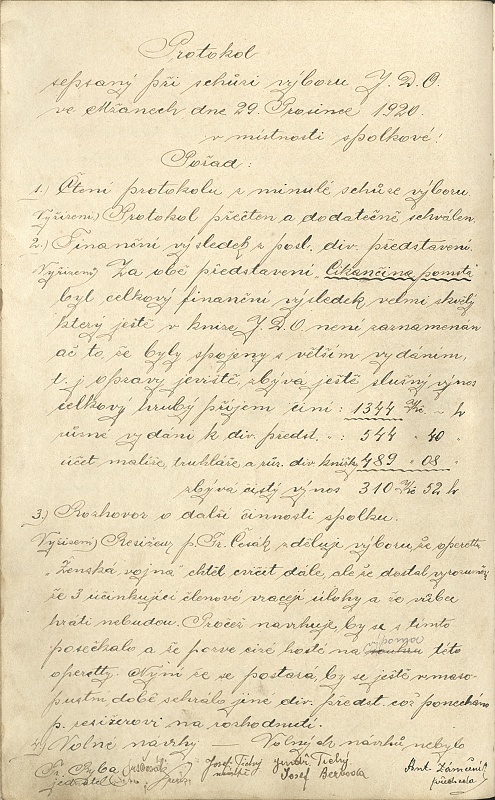 Protokol
sepsaný při schůzi výboru J. D. O.
ve Mžánech dne 29. Prosince 1920.
v místnosti spolkové!
Pořad:
1.) Čtení protokolu z minulé schůze výboru.
Vyřízení) Protokol přečten a dodatečně schválen.
2.) Finanční výsledek z posl. div. představení.
Vyřízení) Za obě představení „Cikánčina pomsta
byl celkový finanční výsledek velmi skvělý
který ještě v knize J. D. O. není zaznamenán
ač to, že byly spojeny s větším vydáním,
t. j. opravy jeviště, zbývá ještě slušný výnos
celkový hrubý příjem činí: 1344 Kč – h
různé vydání k div. předst. : 544 " 40 "
účet malíře, truhláře a růz. div. knížk 489 " 08 "
zbývá čistý výnos 310 Kč 52 h
3.) Rozhovor o další činnosti spolku.
Vyřízení) Resižeur p. Fr. Česák zděluje výboru, že operettu
„Ženská vojna" chtěl cvičit dále, ale že dostal vyrozuměn
že 3 účinkující členové vracejí úlohy a že
hráti nebudou. Pročež navrhuje, by se s tímto
posečkalo a že pozve cizé hosté na této
operetty. Nýní že se postará, by se ještě v maso-
pustní době sehrálo jiné div. předst. což ponecháno
p. resižeurovi na rozhodnutí.
4.) Volné návrhy — Volných návrhů nebylo
Fr. Ryba Josef Tichý Jindř. Tichý Ant. Zámečník
jednatel Josef Berboska předseda